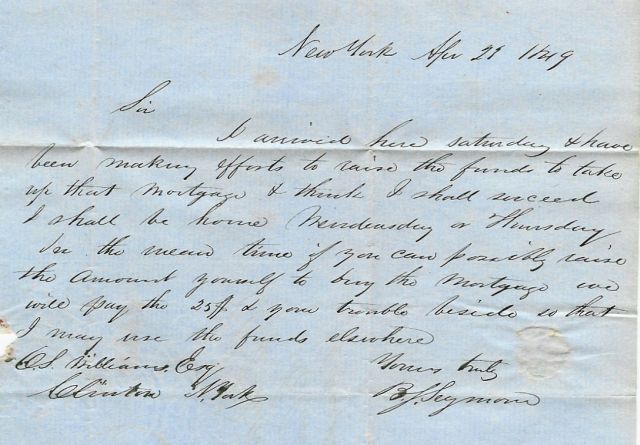 New York Apr 29 1849
Sir
I arrived here saturday & have
been making efforts to raise the funds to take
up that Mortgage & think I shall succeed
I shall be home Wendnesday or Thursday
In the mean time if you can possibly raise
the Amount yourself to buy the Mortgage we
will pay the 25 & your trouble beside so that
I may use the funds elsewhere
O.S. Williams, Esq Yours truly
Clinton N. York B.J. Seymour